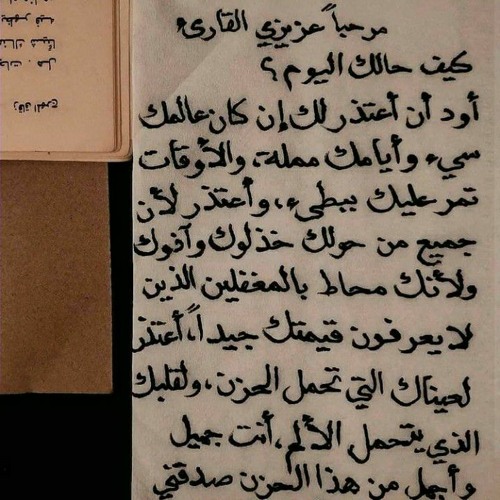 مرحباً عزيزي القارىء
كيف حالك اليوم ؟
أود أن أعتذر لك إن كان عالمك
سيء وأيامك مملة، والأوقات
تمر عليك ببطىء، وأعتذر لأن
جميع من حولك خذلوك وآذوك
ولأنك محاط بالمغفلين الذين
لا يعرفون قيمتك جيداً، أعتذر
لعيناك التي تحمل الحزن، ولقلبك
الذي يتحمل الألم، أنت جميل
وأجمل من هذا الحزن صدقني